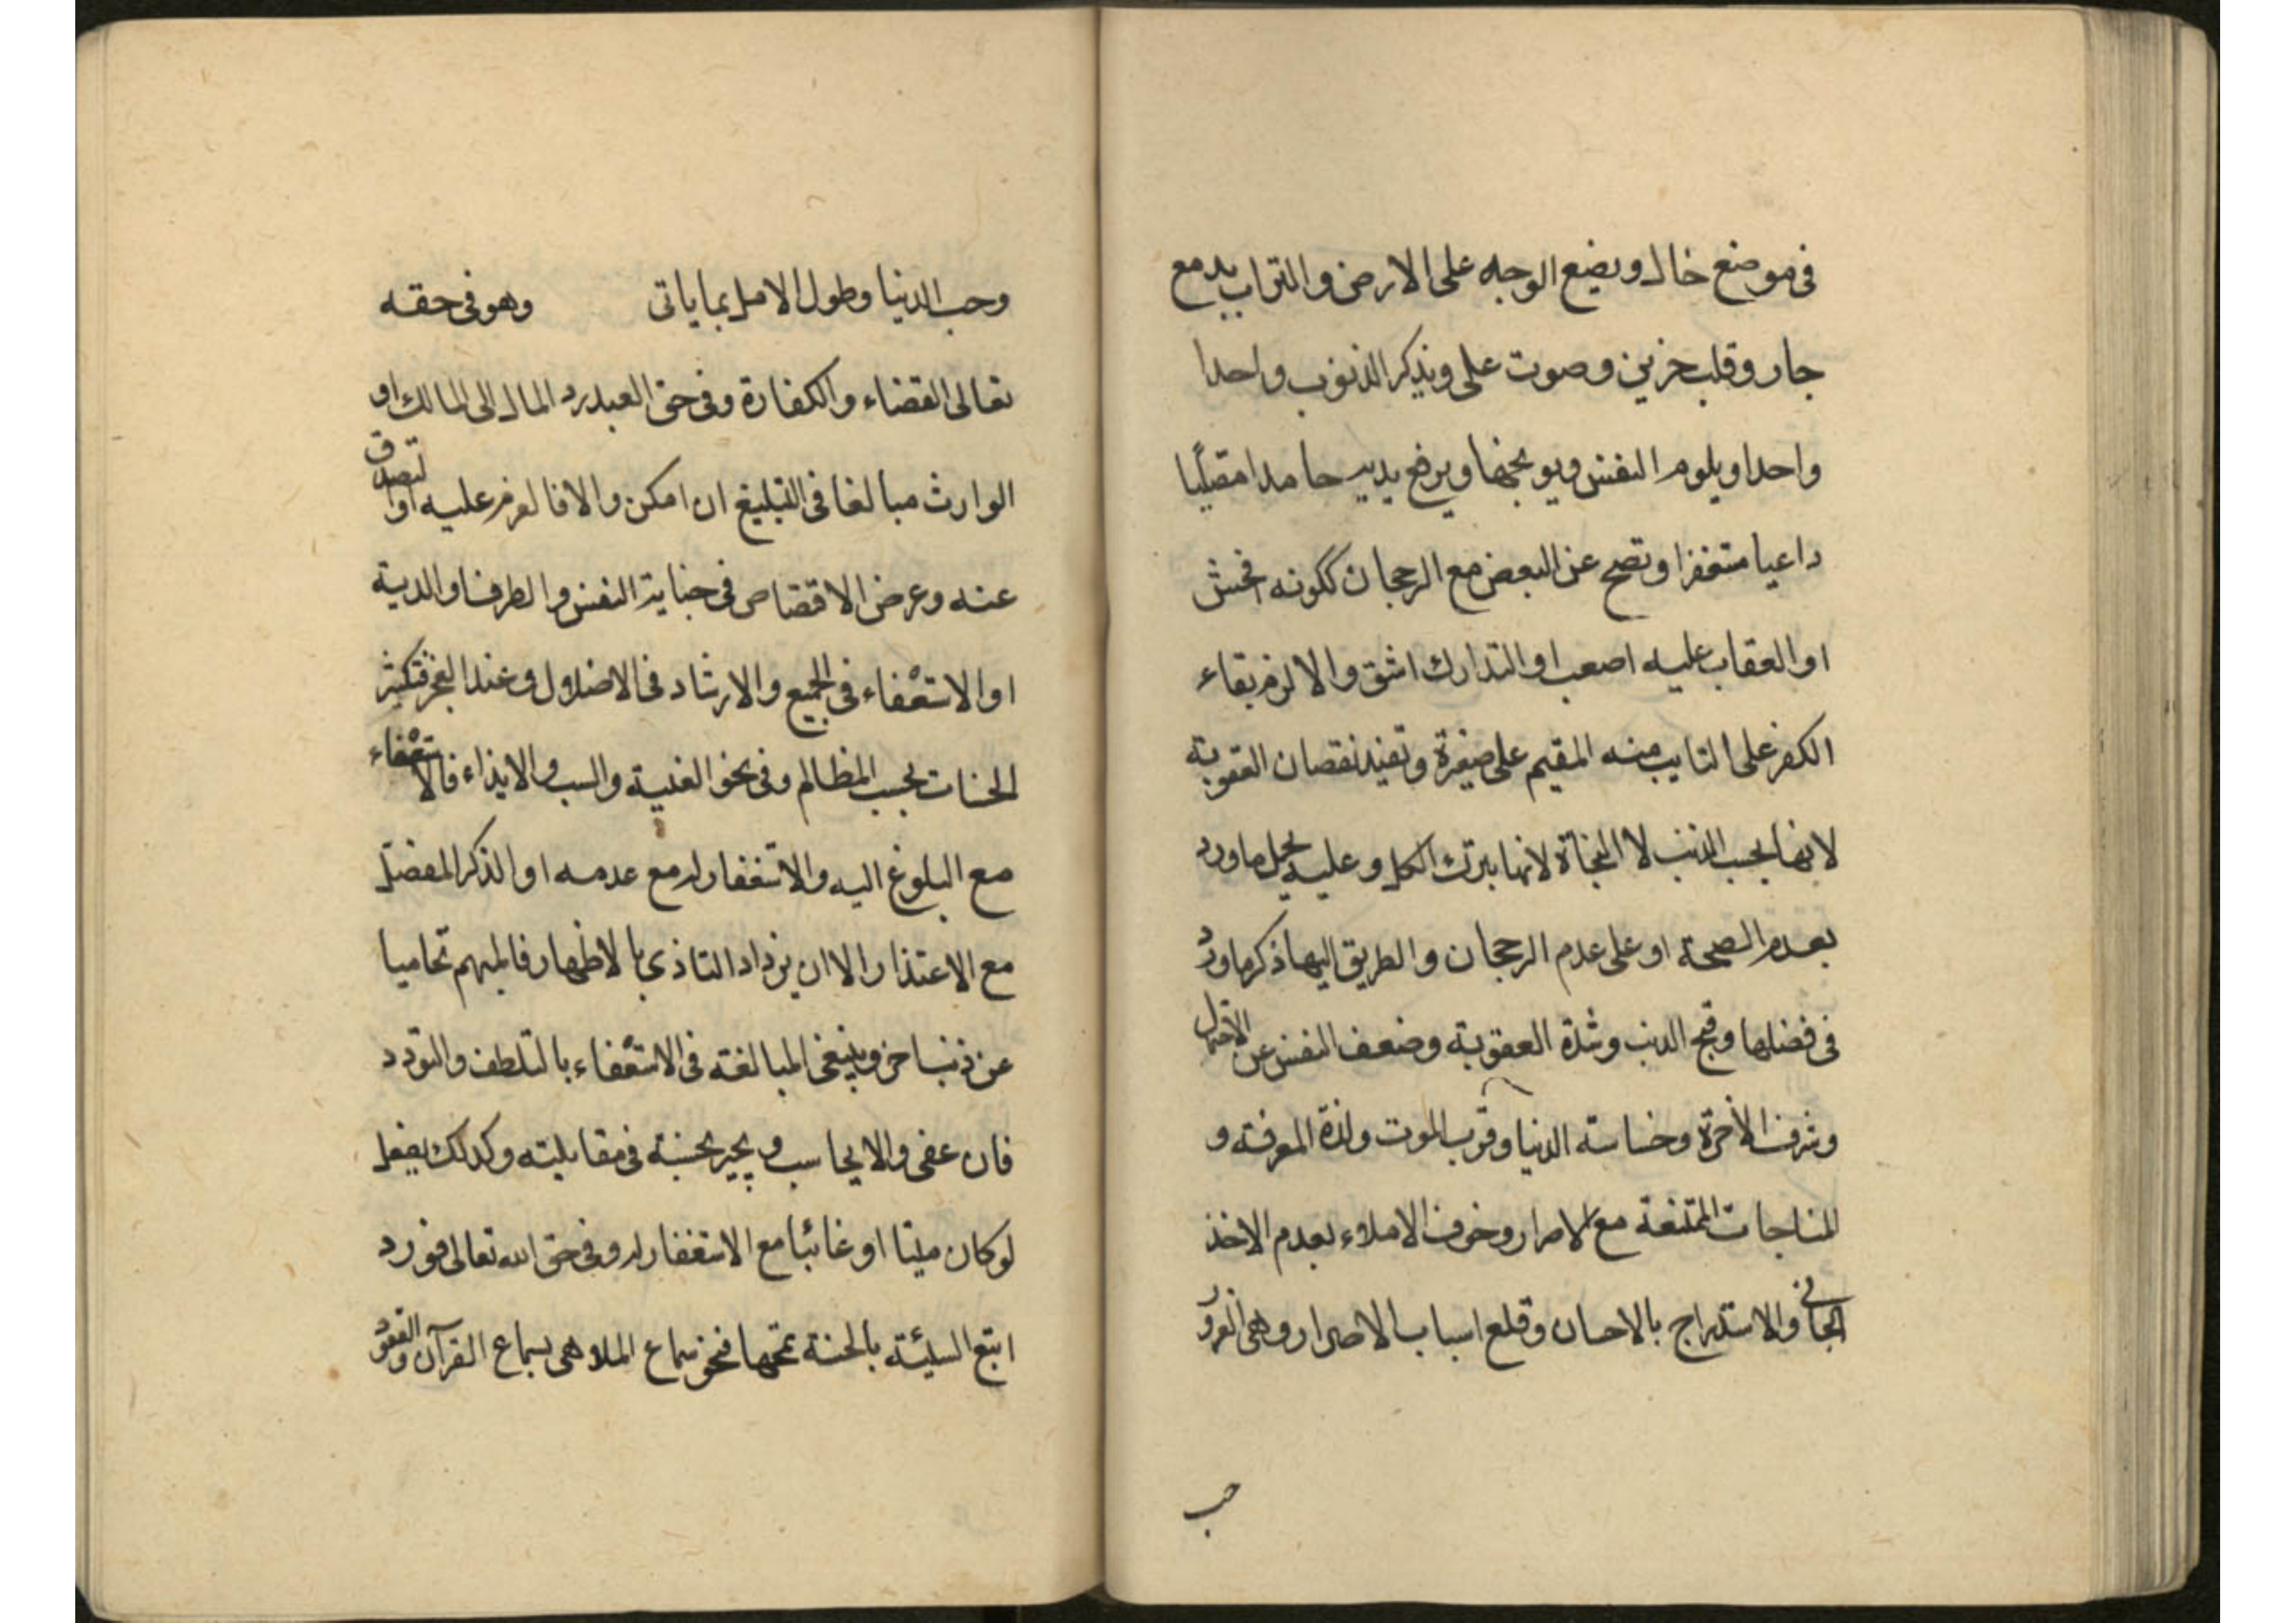 فى موضع خال ويضع الوجه على الارض والتراب بدمع
جار وقلب حزين وصوت على ويذكر الذنوب واحدا
واحدا ويلوم النفس ويوبخها ويرفع يديه حامدا مصليا
داعيا مستغفرا وتصح عن البعض مع الرجحان ككونه افحش
او العقاب عليه اصعب او التدارك اشق والا لزم بقاء
الكفر على التايب منه المقيم على صغيرة وتفيد نقصان العقوبة
لانها بحسب الذنب لا النجاة لانها بترك الكل وعليه يحمل ما ورد
بعدم الصحة او على عدم الرجحان والطريق اليها ذكر ما ورد
فى فضلها وقبح الذنب وشدة العقوبة وضعف النفس عن الاحتمال
وشرف الآخرة وخساسة الدنيا وقرب الموت ولذة المعرفة و
المناجات الممتنعة مع الاصرار وخوف الاملاء بعدم الاخذ
الجانى والاستدراج بالاحسان وقلع اسباب الاصرار وهى الغرور
حب
وحب الدنيا وطول الامل بما ياتى وهو فى حقه
تعالى القضاء والكفارة وفى حق العبد رد المال الى المالك او
الوارث مبالغا فى التبليغ ان امكن والا فالعزم عليه او التصدق
عنه وعرض الاقتصاص فى جناية النفس والطرف او الدية
او الاستعفاء فى الجميع والارشاد فى الاضلال وعند العجز فتكثير
الحسنات بحسب المظالم وفى نحو الغيبة والسب والايذاء فالاستعفاء
مع البلوغ اليه والاستغفار له مع عدمه او الذكر المفصل
مع الاعتذار الا ان يزداد التاذى بالاظهار فالمبهم تحاميا
عن ذنب اخر وينبغى المبالغة فى الاستعفاء بالتلطف والتودد
فان عفى والا يحاسب ويجبر بحسنة فى مقابلته وكذلك يفعل
لو كان ميتا او غائبا مع الاستغفار له وفى حق الله تعالى فورد
اتبع السيئة بالحسنة تمحها فنحو سماع الملاهى بسماع القرآن والقعود